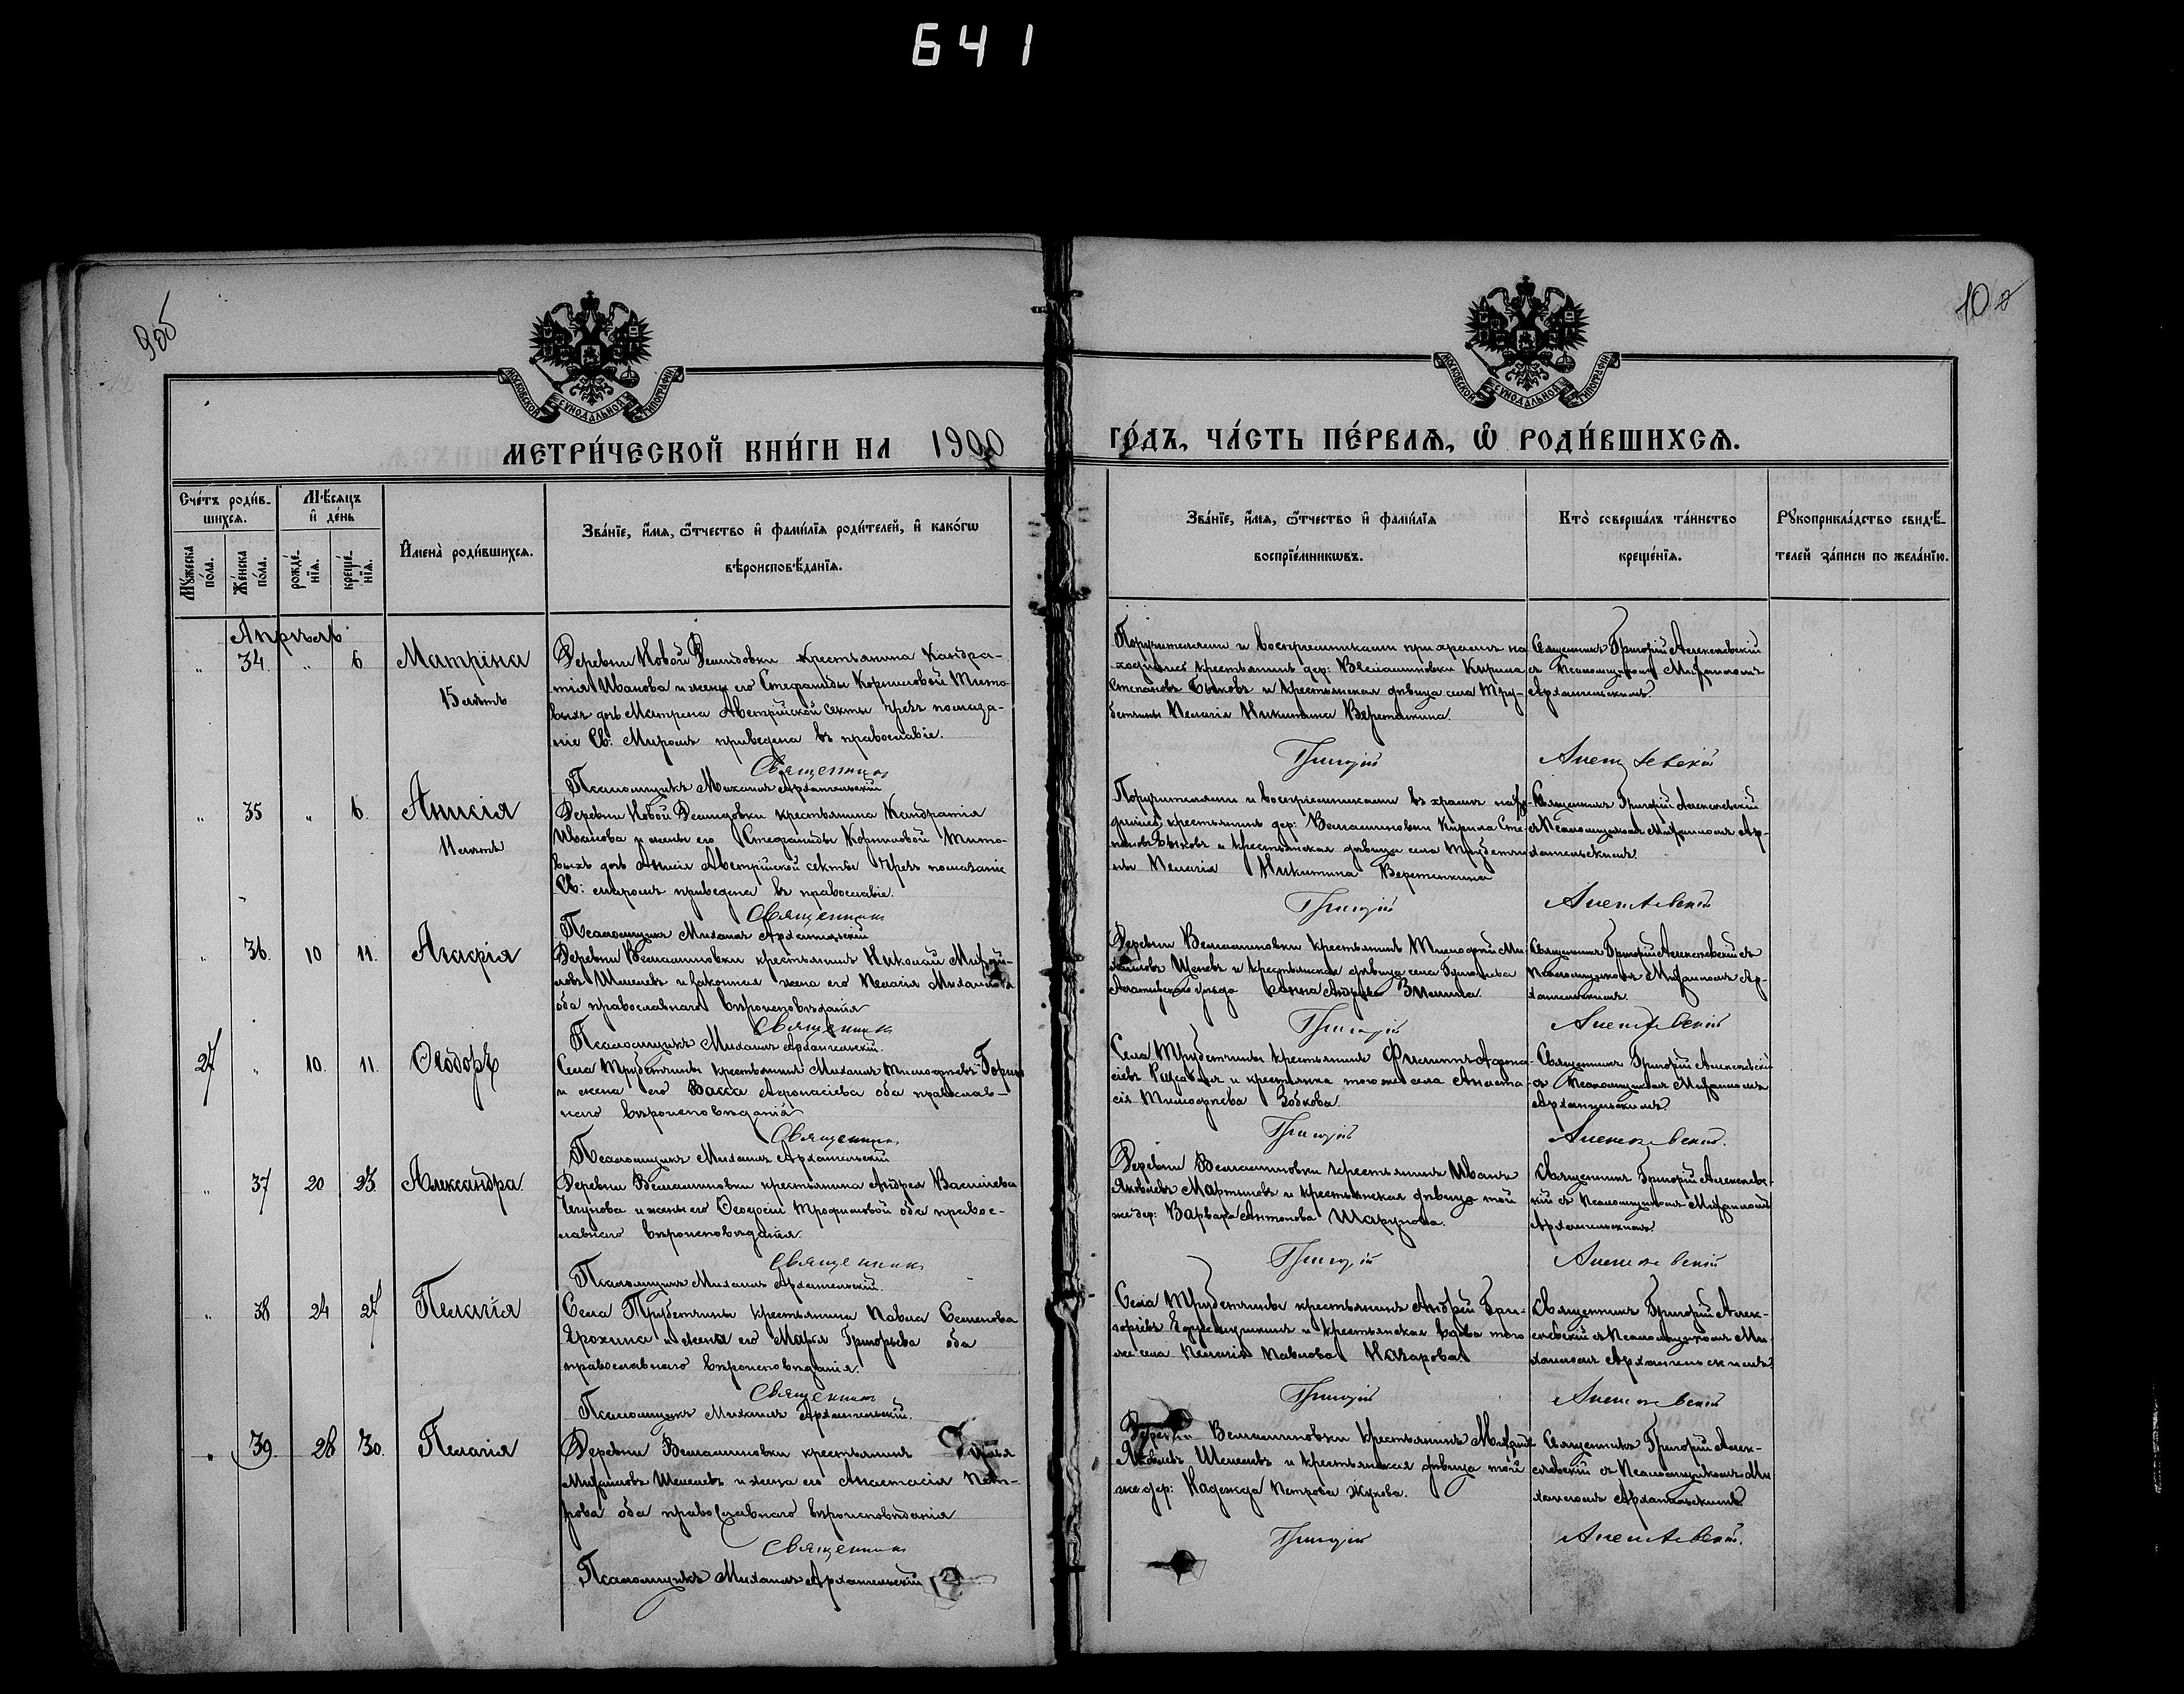 641
9об
10
МОСКОВСКОЙ СѴНОДАЛЬНОЙ ТИПОГРАФІИ
МОСКОВСКОЙ СѴНОДАЛЬНОЙ ТИПОГРАФІИ
МЕТРИ́ЧЕСКОЙ КНИ́ГИ НА 1900
ГО́ДЪ, ЧА́СТЬ ПЕ́РВАѦ, Ѡ҆ РОДИ́ВШИХСѦ.
Сче́тъ роди́в-
шихсѧ.
Мꙋ́жеска по́ла.
Же́нска по́ла.
Мѣ́сѧцъ
и҆ де́нь
рожде́-
нїѧ.
креще́-
нїѧ.
И҆мена̀ роди́вшихсѧ.
Зва́нїе, и҆́мѧ, ѻ҆́тчество и҆ фамѝлїѧ роди́телей, и҆ како́гѡ
вѣроисповѣ́данїѧ.
Зва́нїе, и҆́мѧ, ѻ҆́тчество и҆ фами́лїѧ
воспрїе́мникѡвъ.
Кто̀ соверша́лъ та́инство
креще́нїѧ.
Рꙋкоприкла́дство свидѣ́-
телей за́писи по жела́нїю.
Апрѣль
" 34. " 6 Матрена
15 лѣтъ
Деревни Новой Демидовки крестьянина Кандра-
тія Иванова и жены его Стефаниды Корниловой Тито-
выхъ дочь Матрена Австрійской секты чрезъ помаза-
ніе Св: Мѵромъ приведена въ православіе.
Священникъ
Псаломщикъ Михаилъ Архангельскій
Поручителями и воспріемниками при храмѣ на
ходились крестьянинъ дер: Веліаминовки Кирила
Степановъ Быковъ и крестьянская дѣвица села Тру-
бетчины Пелагія Никитина Веретенкина.
Григорій
Священникъ Григорій Алексеевскій
съ Псаломщикомъ Михаиломъ
Архангельскимъ.
Алексеевскій
" 35 " 6. Анисія
11 лѣтъ
Деревни Новой Демидовки крестьянина Кандратія
Иванова и жены его Стефаниды Корниловой Тито-
выхъ дочь Анисія Австрійской секты чрезъ помазаніе
Св: мѵромъ приведена въ православіе.
Священникъ
Псаломщикъ Михаилъ Архангельскій
Поручителями и воспріемниками въ храмѣ нахо-
дились крестьянинъ дер: Веліаминовки Кирила Сте-
пановъ Быковъ и крестьянская дѣвица села Трубетчи
ны Пелагія Никитина Веретенкина
Григорій
Священникъ Григорій Алексеевскій
съ Псаломщикомъ Михаиломъ Ар-
хангельскимъ.
Алексеевскій
" 36. 10 11. Агафія
Деревни Веліаминовки крестьянинъ Николай Михай-
ловъ Шепелевъ и законная жена его Пелагія Михайлова
оба православнаго вѣроисповѣданія
Священникъ
Псаломщикъ Михаилъ Архангельскій.
Деревни Веліаминовки крестьянинъ Тимофей Ми-
хайловъ и крестьянская дѣвица села
уѣзда Анна
Григорій
Священникъ Григорій Алексеевскій съ
Псаломщикомъ Михаиломъ Ар-
хангельскимъ.
Алексеевскій
27 " 10. 11. Ѳеодоръ
Села Трубетчины крестьянинъ Михаилъ Тимофеевъ
и жена его Васса Афонасіева оба православ-
наго вѣроисповѣданія
Священникъ
Псаломщикъ Михаилъ Архангельскій
Села Трубетчины крестьянинъ Филиппъ Афона-
сіевъ и крестьянка того же села Анаста-
сія Тимофеева Зобкова.
Григорій
Священникъ Григорій Алексеевскій
съ Псаломщикомъ Михаиломъ
Архангельскимъ.
Алексеевскій.
" 37 20 23. Александра.
Деревни Веліаминовки крестьянина Андрея Васильева
Чегунова и жены его Ѳеодосіи Трофимовой оба правос-
лавнаго вѣроисповѣданія.
Священникъ
Псаломщикъ Михаилъ Архангельскій.
Деревни Веліаминовки крестьянинъ Иванъ
Яковлевъ Мартыновъ и крестьянская дѣвица той
же дер: Варвара Антонова Шарунова.
Григорій
Священникъ Григорій Алексеевс-
кій съ Псаломщикомъ Михаиломъ
Архангельскимъ.
Алексеевскій
" 38 24 27 Пелагія
Села Трубетчины крестьянина Павла Семенова
Ерохина и жена его Марья Григорьева оба
православнаго вѣроисповѣданія.
Священникъ
Псаломщикъ Михаилъ Архангельскій.
Села Трубетчины крестьянинъ Андрей Гри-
горіевъ и крестьянская вдова того
же села Пелагія Павлова Назарова
Григорій
Священникъ Григорій Алек-
сеевскій съ Псаломщикомъ Ми-
хаиломъ Архангельскимъ.
Алексеевскій
39. 28 30. Пелагія
Деревни Веліаминовки крестьянинъ Илья
Михайловъ Шепелевъ и жена его Анастасія Пет-
рова оба православнаго вѣроисповѣданія
Священникъ
Псаломщикъ Михаилъ Архангельскій
Деревни Веліаминовки крестьянинъ Михаилъ
Яковлевъ Шепелевъ и крестьянская дѣвица той
же дер: Надежда Петрова Жукова.
Григорій
Священникъ Григорій Алек-
сеевскій съ Псаломщикомъ Ми
хаиломъ Архангельскимъ.
Алексеевскій.